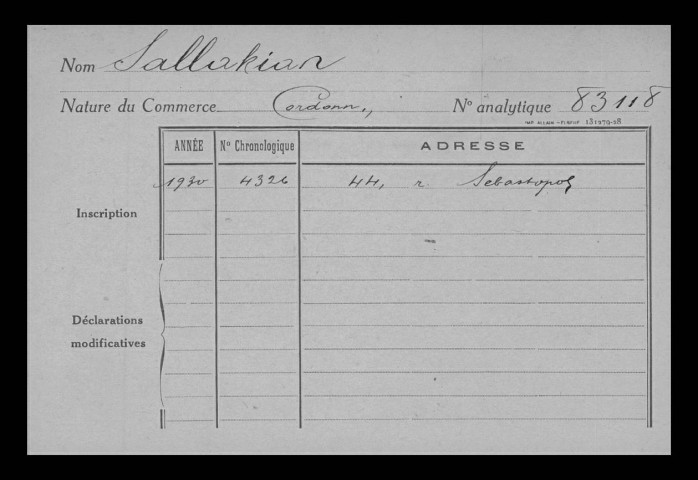 Nom Sallakian
Nature du Commerce Cordonn., N° analytique 83118
ANNÉE N° Chronologique ADRESSE
1930 4326 44, r. Sebastopol
Inscription
Déclarations
modificatives